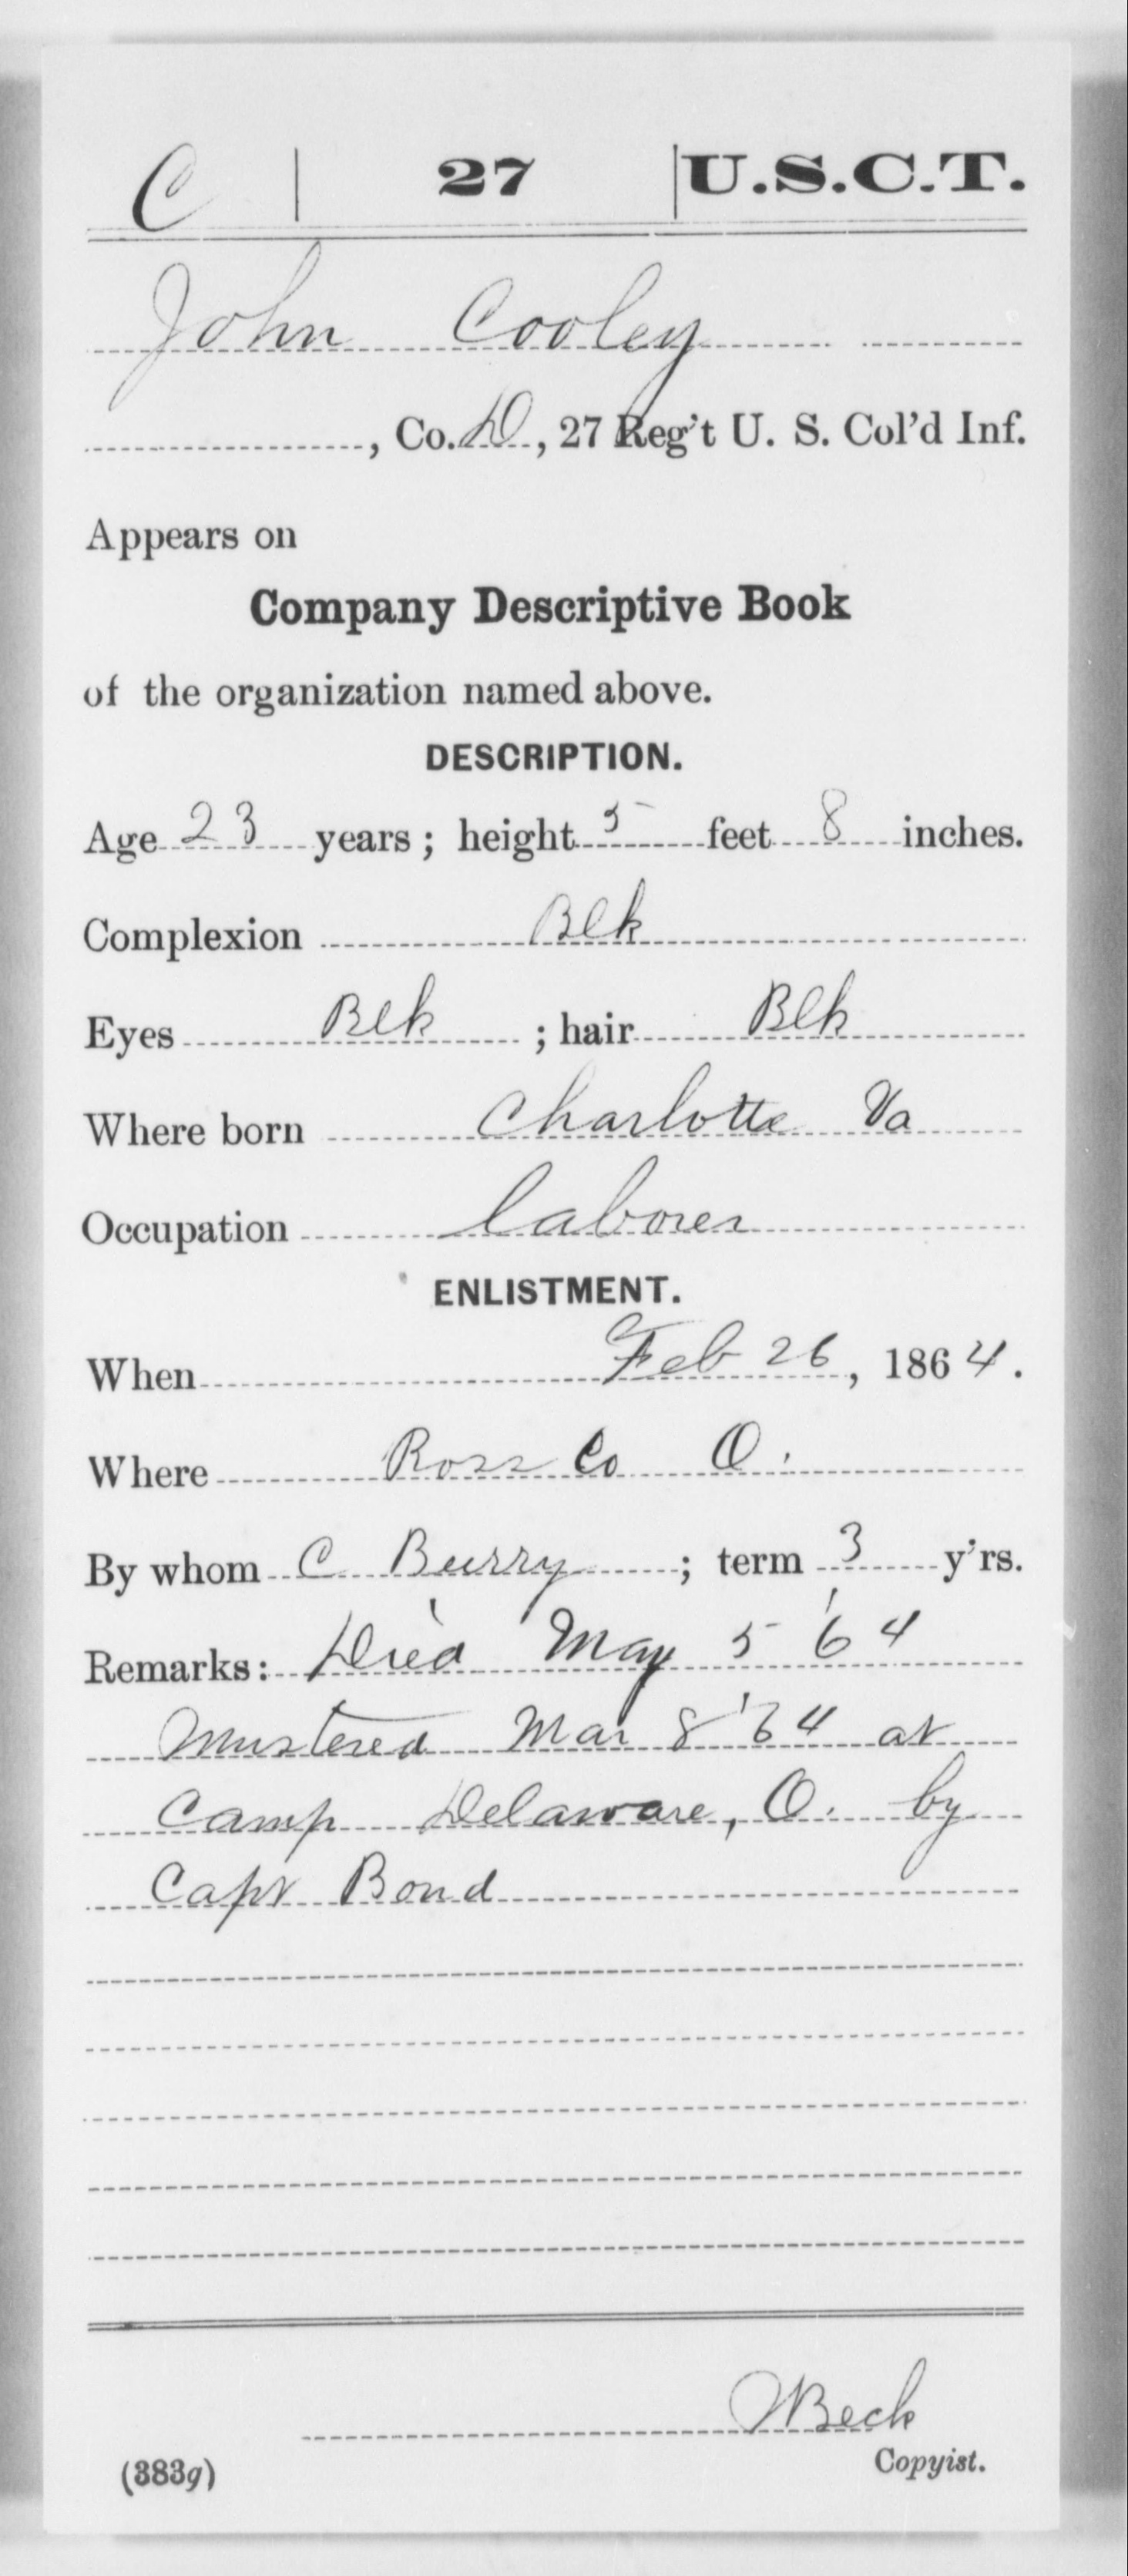 C | 27 | U.S.C.T.
John Cooley
, Co. D, 27 Reg't U. S. Col'd Inf.
Appears on
Company Descriptive Book
of the organization named above.
DESCRIPTION.
Age 23 years; height 5 feet 8 inches.
Complexion Blk
Eyes Blk ; hair Blk
Where born Charlotte Va
Occupation laborer
ENLISTMENT.
When Feb 26, 1864.
Where Ross Co O.
By whom C Burry ; term 3 y'rs.
Remarks: Died May 5 '64
Mustered Mar 8 '64 at
Camp Delaware, O. by
Capt Bond
Beck
(383g) Copyist.